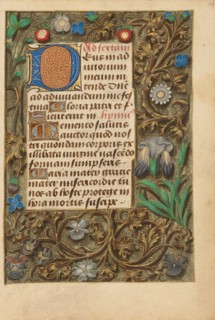 Ad sextam
Deus in ad
iutorium
meum in
tende. Dne
ad adiuuandum me fes
tina Gloria patri et f
sicut erat in hymnus
Memento salutis
auctor quod nos
tri quondam corporis ex
illibata uirgine nascendo
formam sumpseris
Maria mater gratie
mater misericordie tu
nos ab hoste protege in
hora mortis suscipe